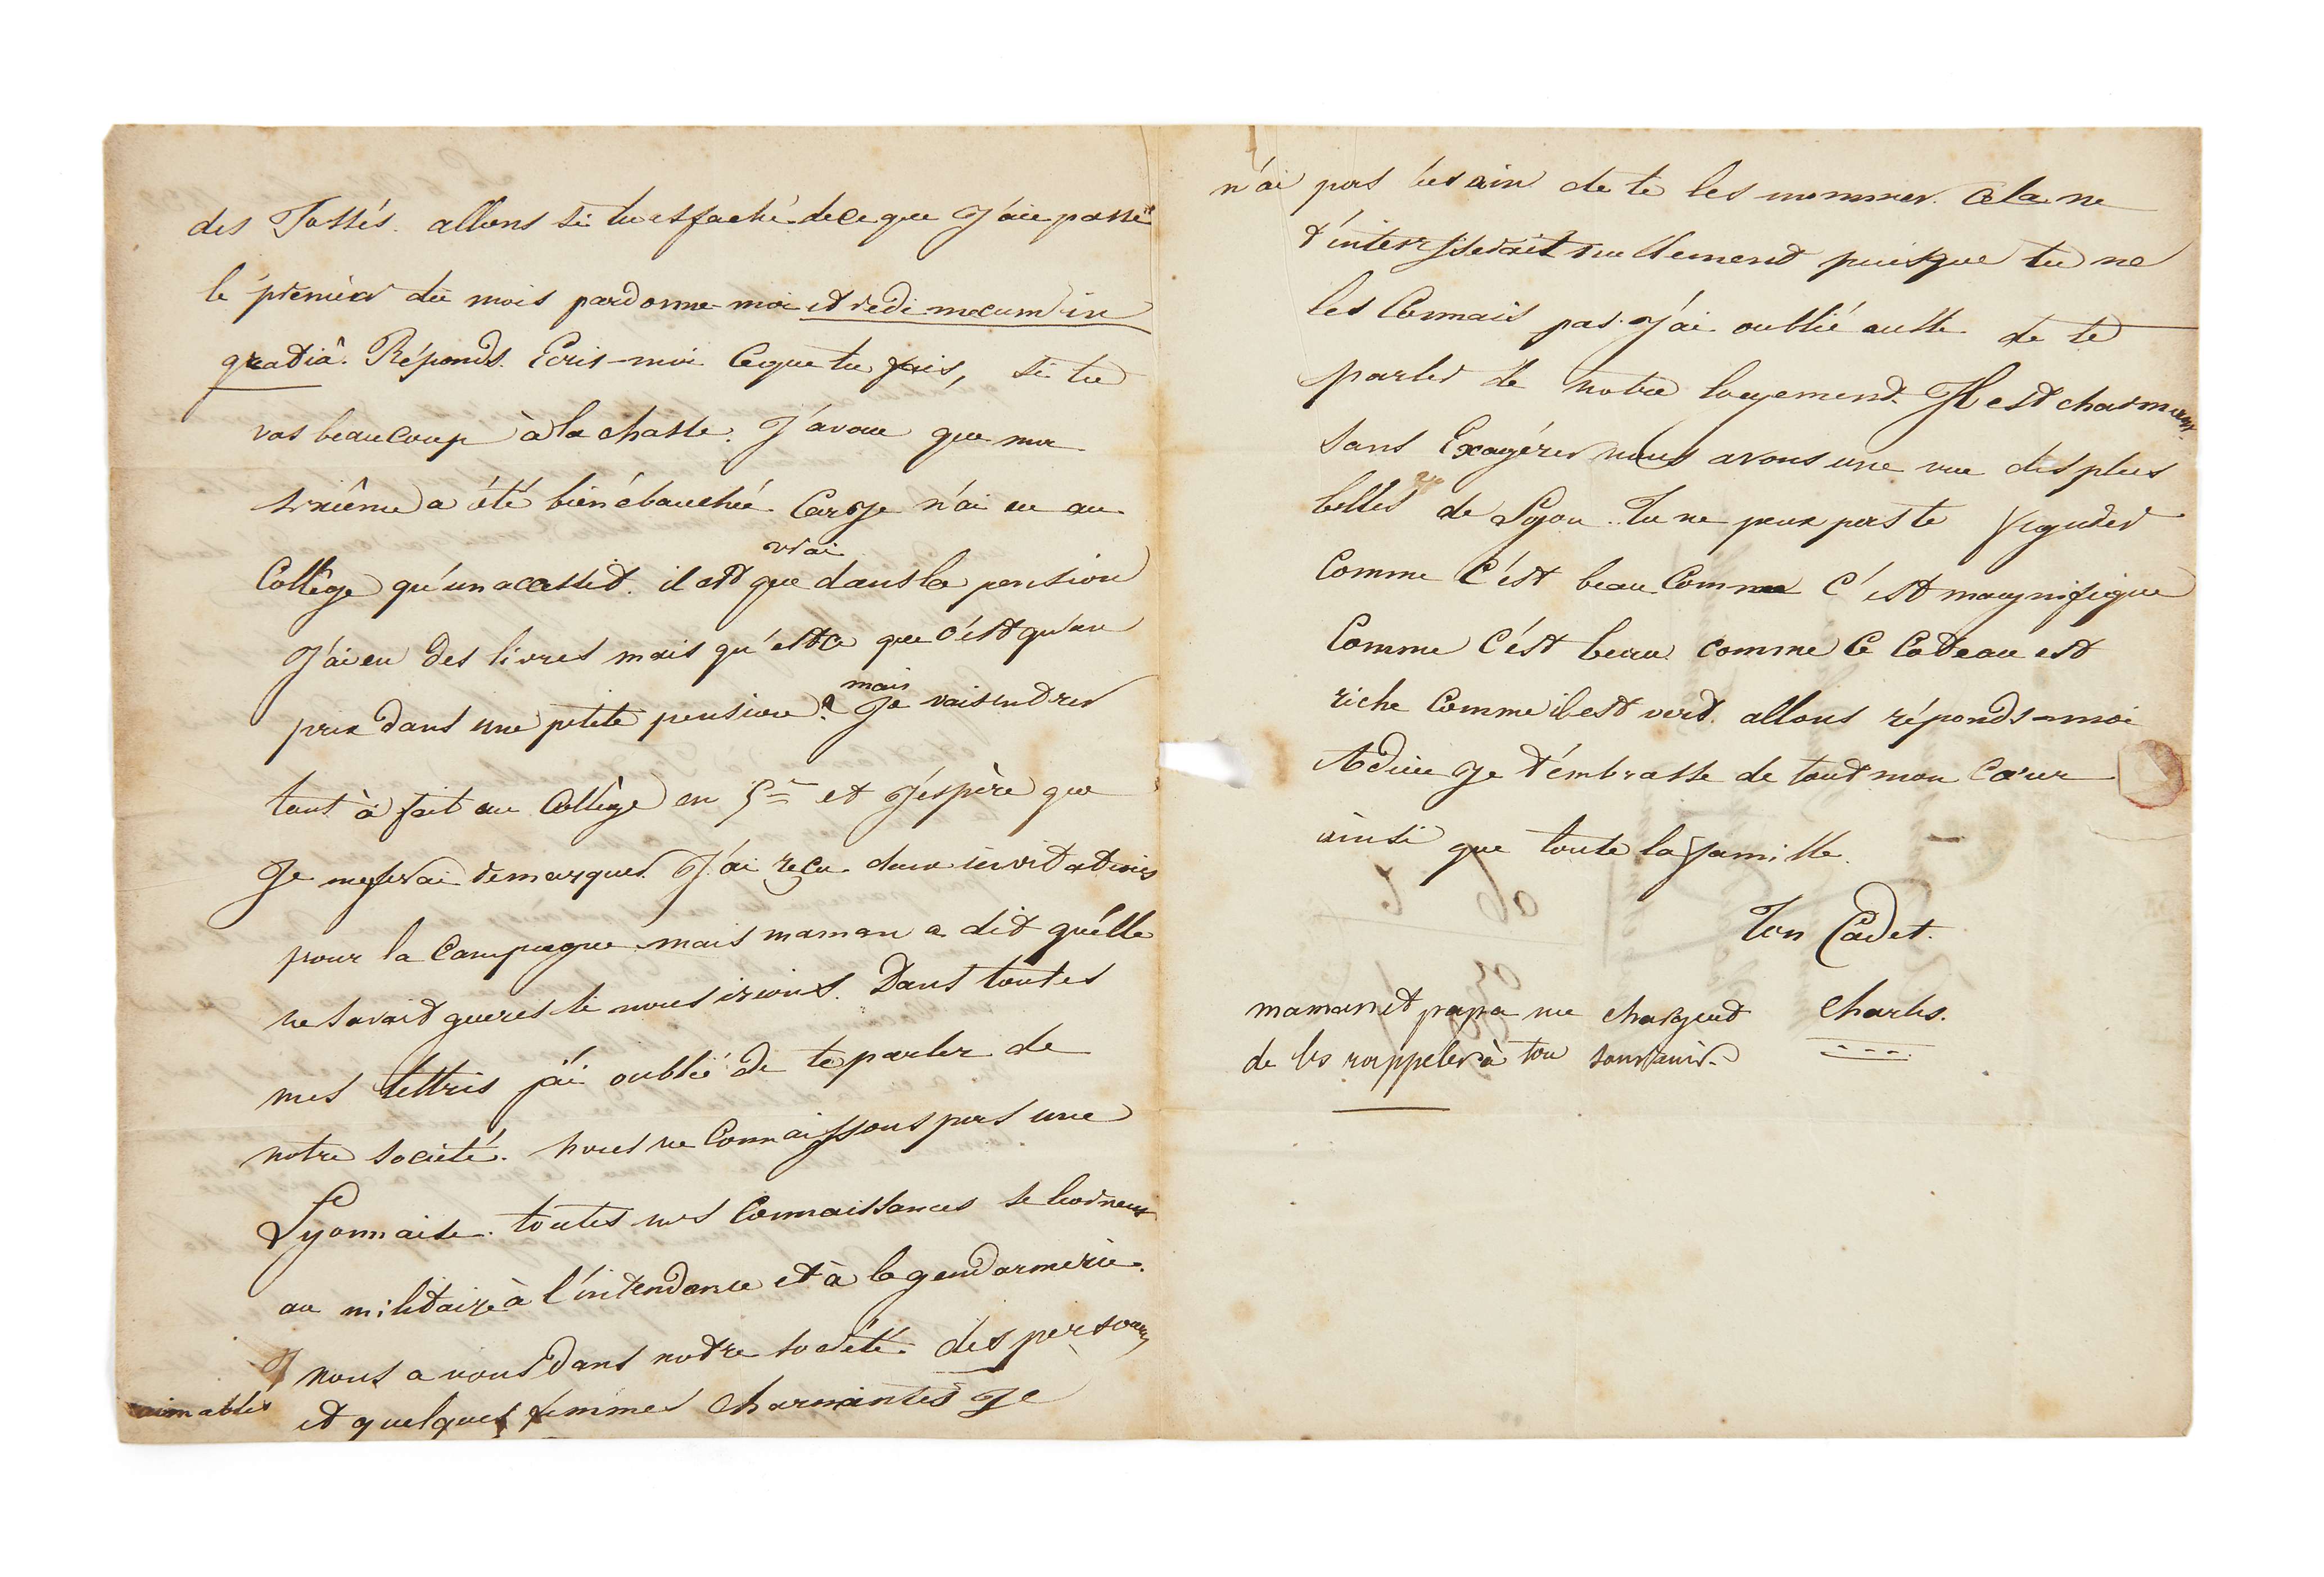 des Fossés. allons si tu es faché de ce que J'aie passé
le premier du mois pardonne-moi et redi mecum in
gratiâ. Réponds. Ecris-moi ce que tu fais, si tu
vas beaucoup à la chasse. J'avoue que ma
sixième a été bien ébauchée. Car Je n'ai eu au
vrai
Collège qu'un accessit. il est que dans la pension
J'ai eu des livres mais qu'est ce que c'est qu'un
mais
prix dans une petite pension? Je vais entrer
tout à fait au Collège en 5me et J'espère que
Je me ferai remarquer. J'ai reçu deux invitations
pour la Campagne mais maman a dit qu'elle
ne savait gueres si nous irions. Dans toutes
mes lettres j'ai oublié de te parler de
notre société. nous ne Connaissons pas une
Lyonnaise. toutes nos Connaissances se bornent
au militaire à l'intendance et à la gendarmerie.
nous avons dans notre société des personnes
aimables et quelques femmes charmantes Je
n'ai pas besoin de te les nommer. Cela ne
t'interesserait nullement puisque tu ne
les Connais pas. J'ai oublié aussi de te
parler de notre logement. Il est charmant.
sans Exagérer nous avons une vue des plus
belles de Lyon. Tu ne peux pas te figurer
Comme C'est beau Comme C'est magnifique
Comme C'est beau comme Ce Coteau est
riche Comme il est vert. allons réponds-moi
Adieu Je t'embrasse de tout mon Cœur
ainsi que toute la famille.
Ton Cadet.
Charles.
maman et papa me chargent
de les rappeler à ton souvenir.